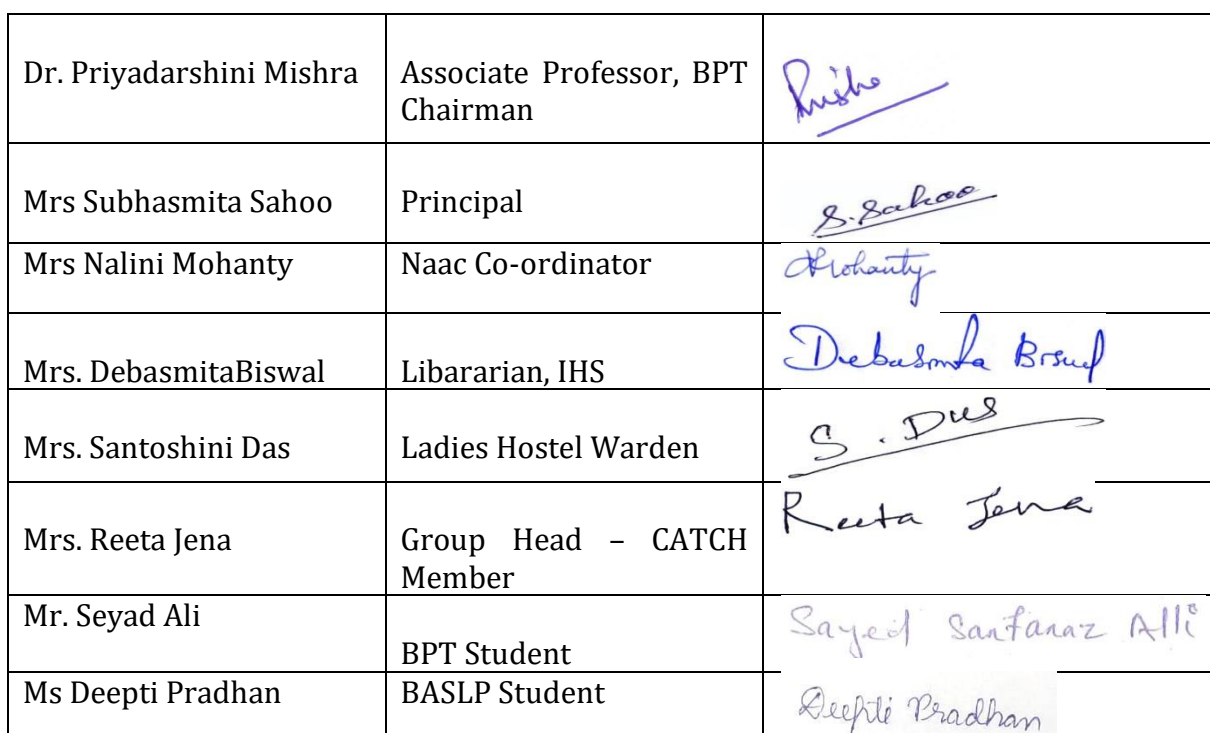 Dr. Priyadarshini Mishra
Associate Professor, BPT
Chairman
Mrs Subhasmita Sahoo
Principal
S. Sahoo
Mrs Nalini Mohanty
Naac Co-ordinator
Mohanty
Mrs. DebasmitaBiswal
Libararian, IHS
Debasmita
Mrs. Santoshini Das
Ladies Hostel Warden
S. Das
Mrs. Reeta Jena
Group Head – CATCH
Member
Reeta Jena
Mr. Seyad Ali
BPT Student
Sayed Sarfaraz Alli
Ms Deepti Pradhan
BASLP Student
Deepti Pradhan